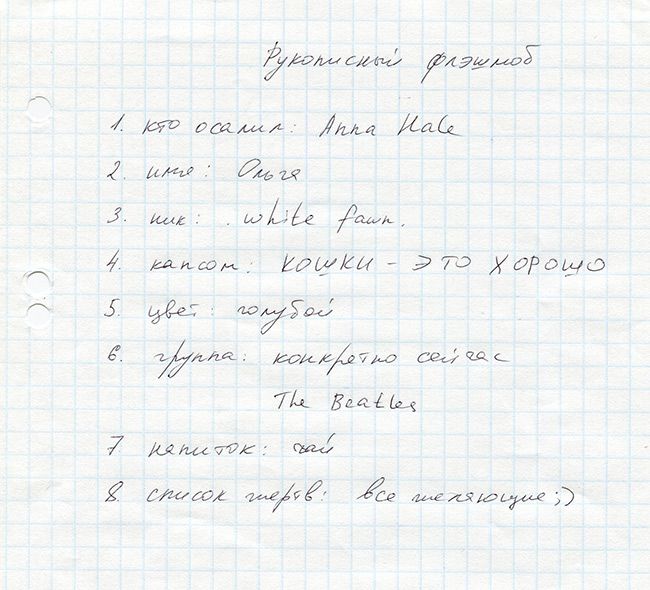 Рукописный флэшмоб
1. кто осалил: Anna Hale
2. имя: Ольга
3. ник: white fawn.
4. капсом: КОШКИ – ЭТО ХОРОШО
5. цвет: голубой
6. группа: конкретно сейчас
The Beatles
7 напиток: чай
8. список жертв: все желающие ;)